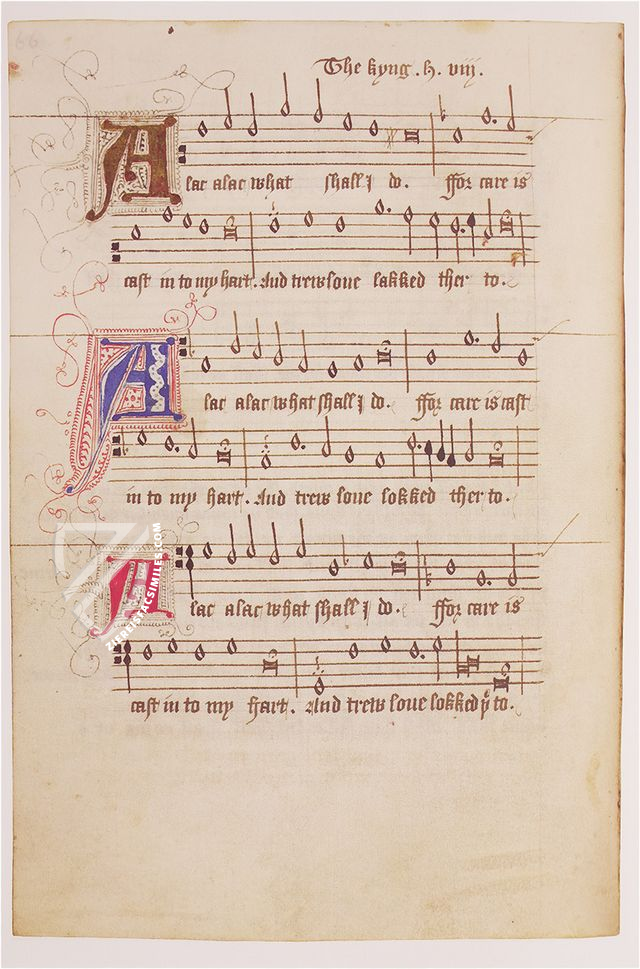 66
The kyng . h . viij.
Alac alac what shall I do. ffor care is
cast in to my hart. And trew loue lakked ther to.
Alac alac what shall I do. ffor care is cast
in to my hart. And trew loue lokked ther to.
Alac alac what shall I do. ffor care is
cast in to my hart. And trew loue lokked þr to.
ZIEREISFACSIMILES.COM